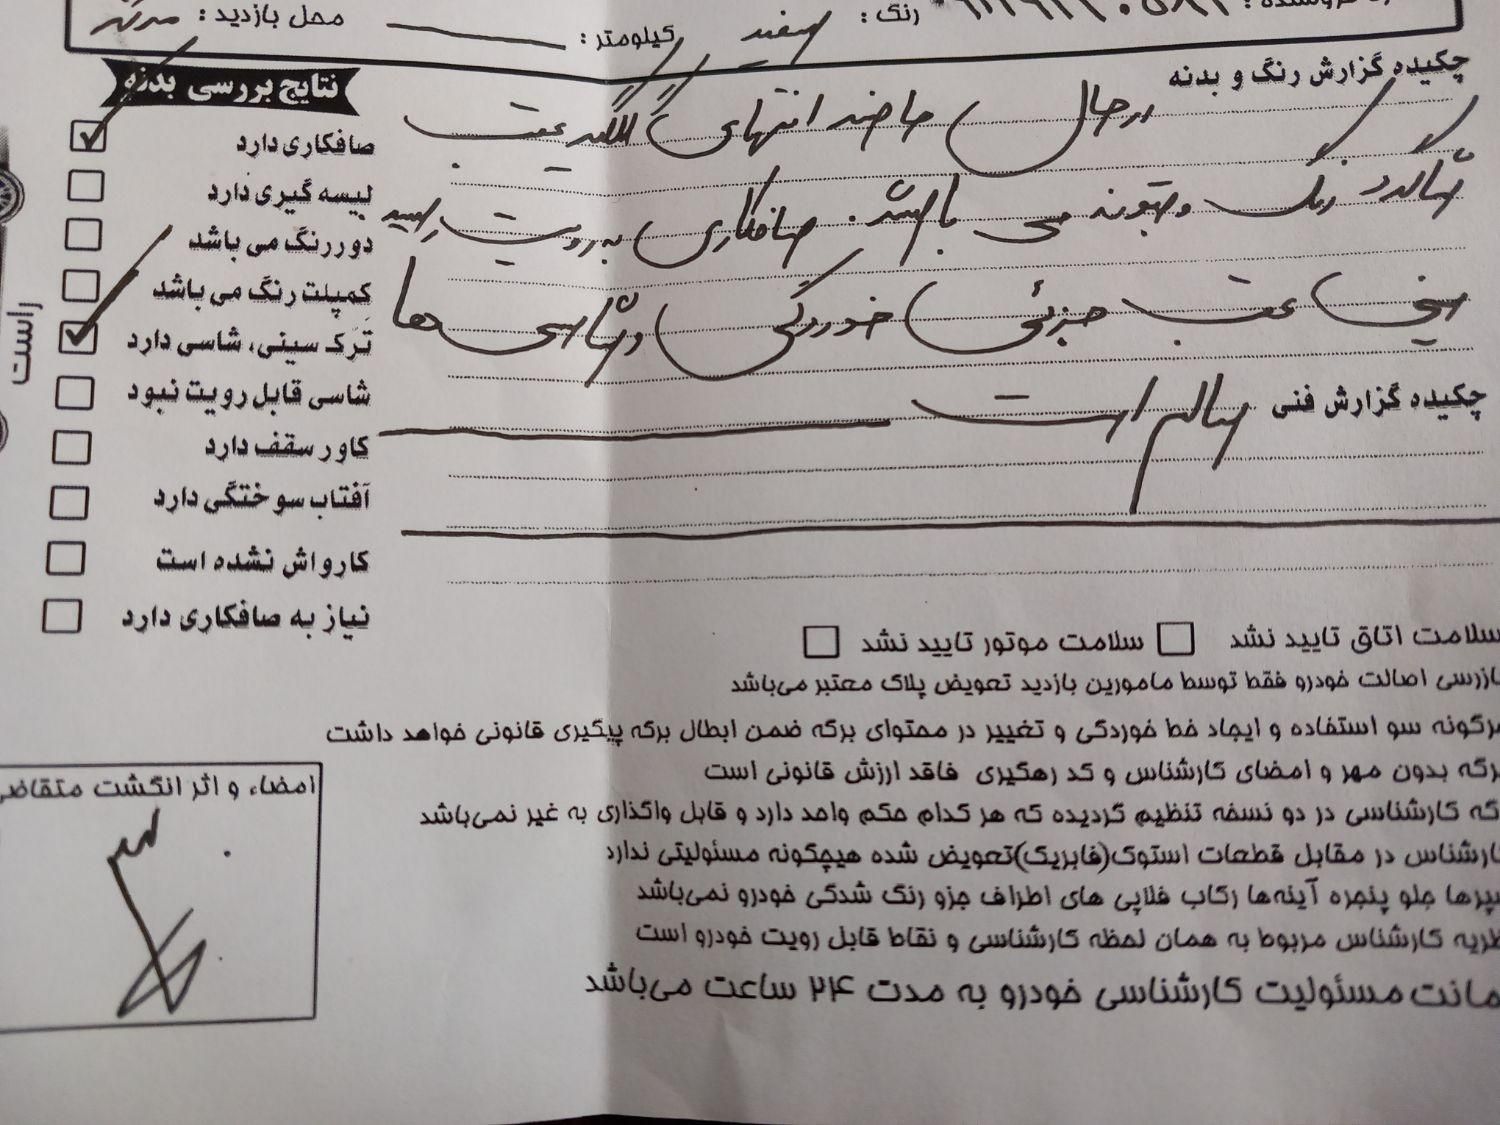 رنگ : سفید کیلومتر : محل بازدید :
چکیده گزارش رنگ و بدنه
در حال حاضر انتهای گلگیر عقب
شاگرد رنگ و بتونه می باشد. صافکاری به رویت رسید
سینی عقب جزئی خوردگی و شاسی ها
چکیده گزارش فنی سالم است
نتایج بررسی بدنه
صافکاری دارد
لیسه گیری دارد
دور رنگ می باشد
کمپلت رنگ می باشد
ترک سینی، شاسی دارد
شاسی قابل رویت نبود
کاور سقف دارد
آفتاب سوختگی دارد
کارواش نشده است
نیاز به صافکاری دارد
راست
سلامت اتاق تایید نشد سلامت موتور تایید نشد
بازرسی اصالت خودرو فقط توسط مامورین بازدید تعویض پلاک معتبر می‌باشد
هرگونه سو استفاده و ایجاد خط خوردگی و تغییر در محتوای برگه ضمن ابطال برگه پیگیری قانونی خواهد داشت
برگه بدون مهر و امضای کارشناس و کد رهگیری فاقد ارزش قانونی است
برگه کارشناسی در دو نسخه تنظیم گردیده که هر کدام حکم واحد دارد و قابل واگذاری به غیر نمی‌باشد
کارشناس در مقابل قطعات استوک(فابریک)تعویض شده هیچگونه مسئولیتی ندارد
سپرها جلو پنجره آینه‌ها رکاب فلاپی های اطراف جزو رنگ شدگی خودرو نمی‌باشد
نظریه کارشناس مربوط به همان لحظه کارشناسی و نقاط قابل رویت خودرو است
ضمانت مسئولیت کارشناسی خودرو به مدت ۲۴ ساعت می‌باشد
امضاء و اثر انگشت متقاضی